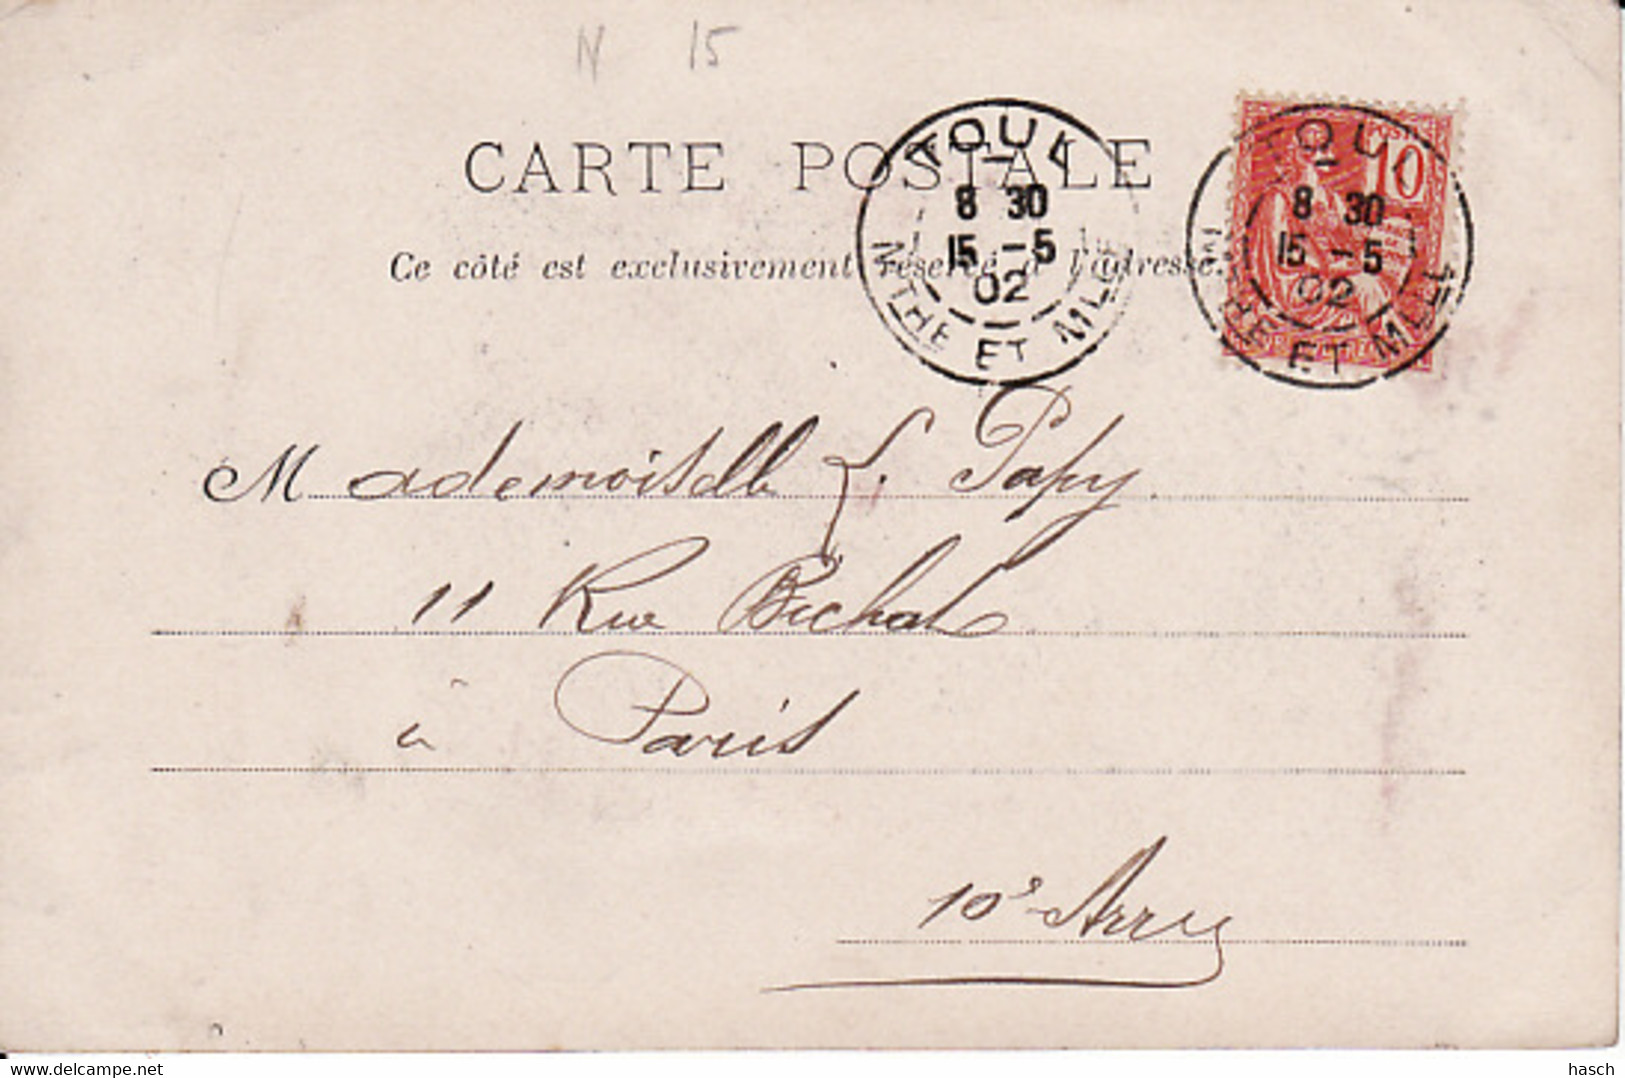 N 15
CARTE POSTALE
Ce côté est exclusivement réservé à l'adresse.
TOUL
8 30
15 -5
02
MTHE ET MLLE
TOUL
8 30
15 -5
02
MTHE ET MLLE
POSTES
10
Mademoiselle L. Papy
11 Rue Bichat
à Paris
10e Arr
delcampe.net
hasch